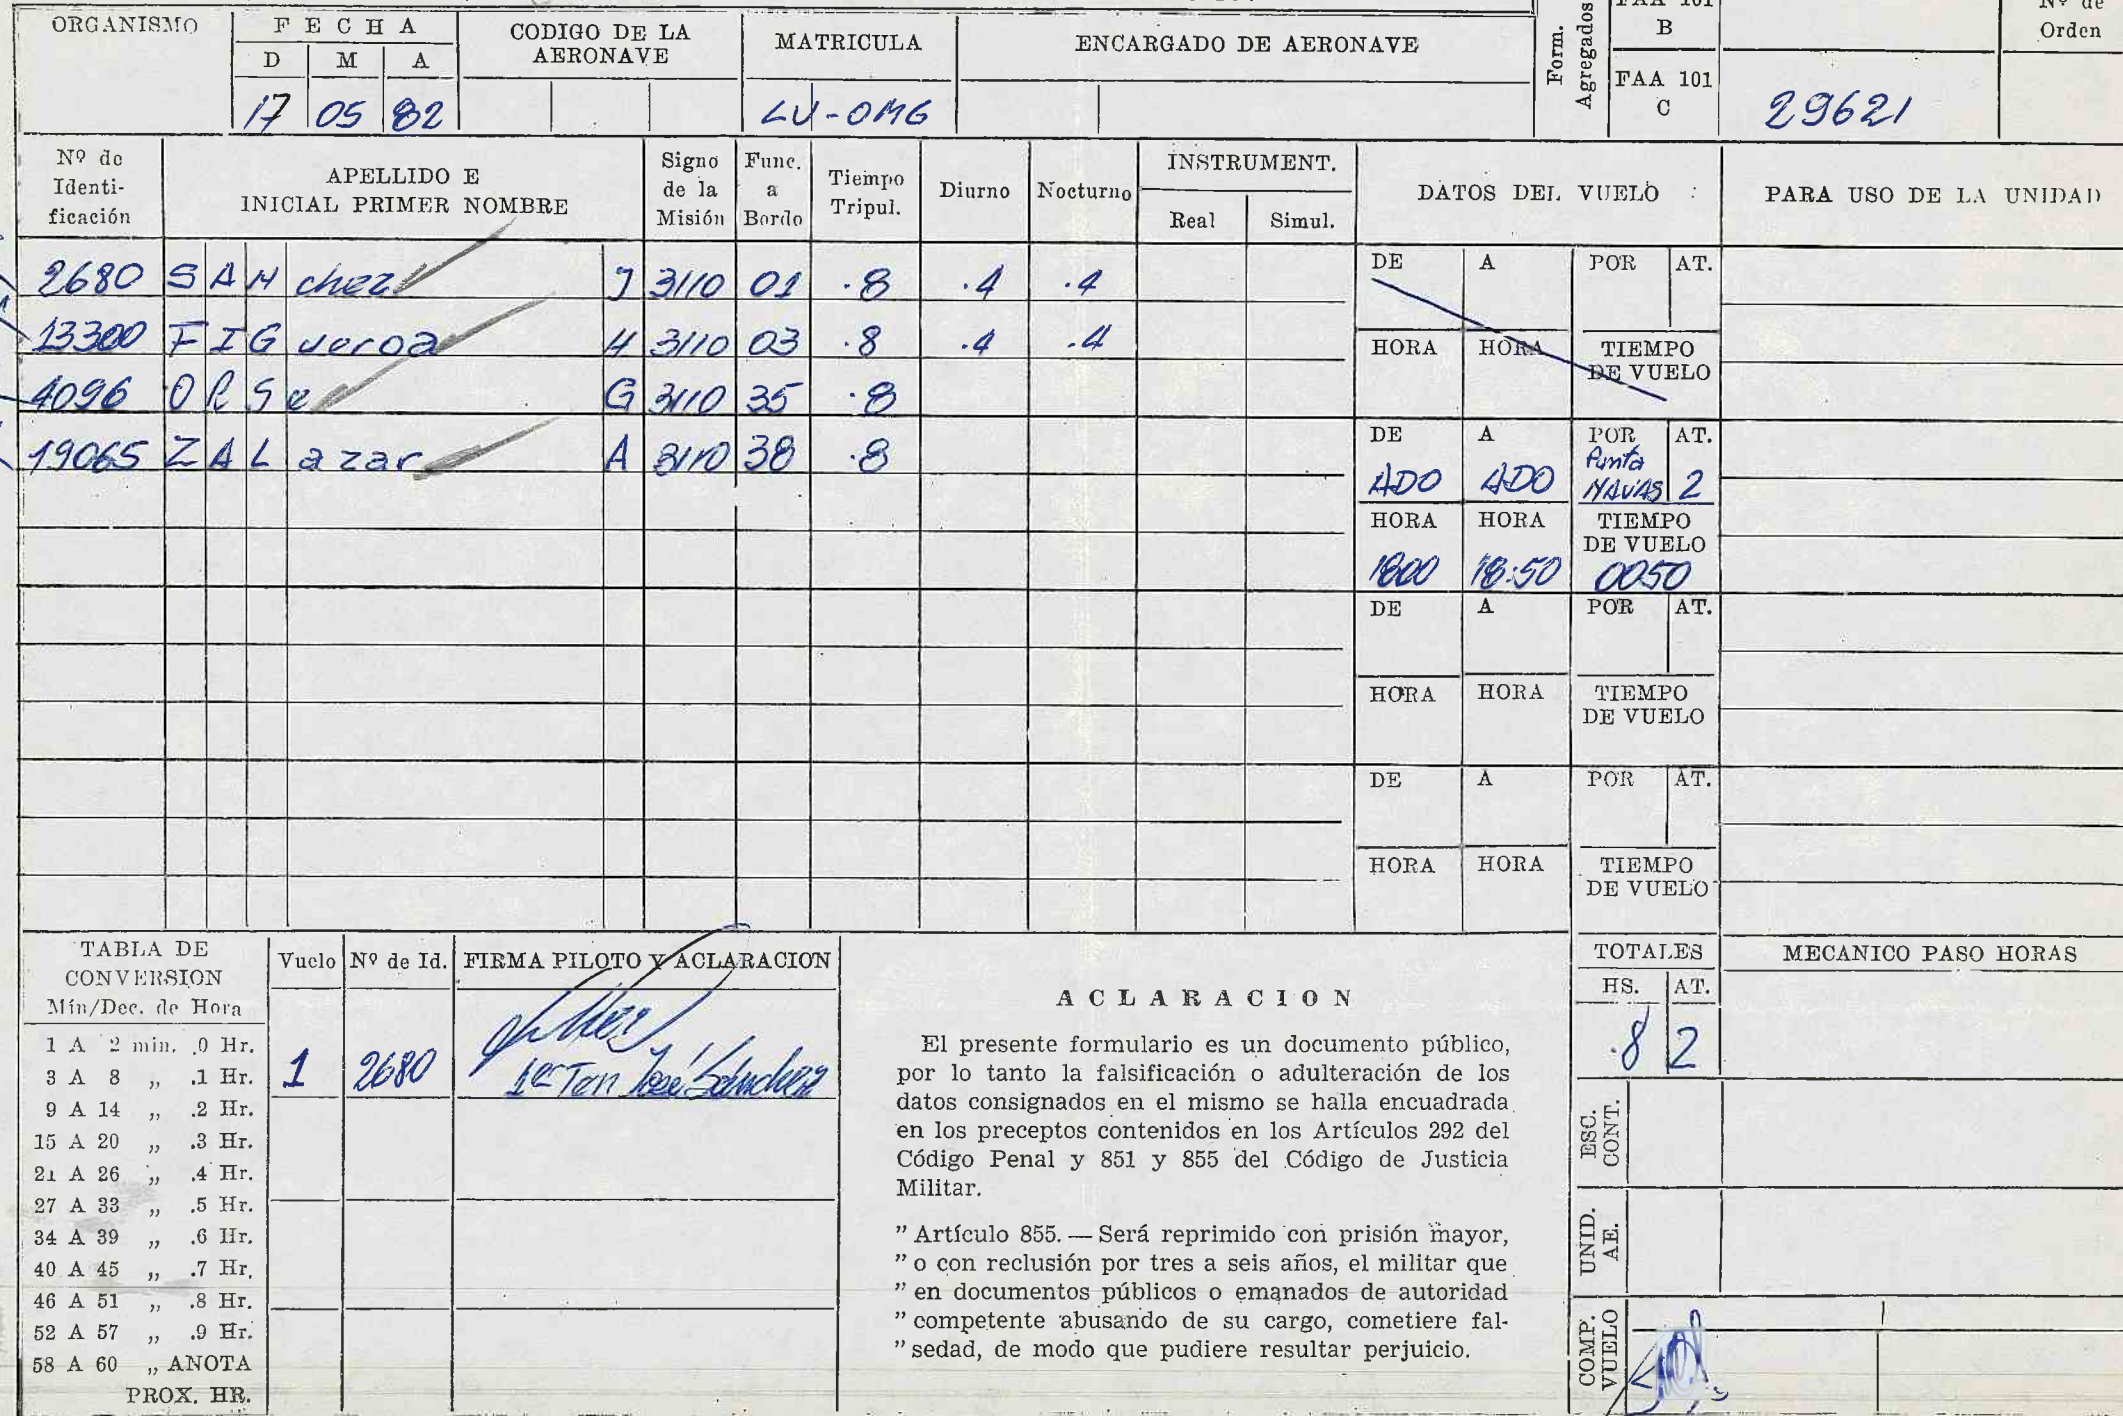 ORGANISMO
F E C H A
D M A
17 05 82
CODIGO DE LA
AERONAVE
MATRICULA
LV-OMG
ENCARGADO DE AERONAVE
Form.
Agregados
FAA 101
B
FAA 101
C
29621
Nº de
Orden
Nº de
Identi-
ficación
APELLIDO E
INICIAL PRIMER NOMBRE
Signo
de la
Misión
Func.
a
Bordo
Tiempo
Tripul.
Diurno
Nocturno
INSTRUMENT.
Real Simul.
DATOS DEL VUELO
PARA USO DE LA UNIDAD
2680 SANchez J 3110 01 .8 .4 .4
13300 FIGueroa H 3110 03 .8 .4 .4
4096 ORSe G 3110 35 .8
19065 ZALazar A 3110 38 .8
DE A POR AT.
HORA HORA TIEMPO
DE VUELO
DE A POR AT.
Punta
ADO ADO NAVAS 2
HORA HORA TIEMPO
DE VUELO
1800 18:50 0050
DE A POR AT.
HORA HORA TIEMPO
DE VUELO
DE A POR AT.
HORA HORA TIEMPO
DE VUELO
TABLA DE
CONVERSION
Mín/Dec. de Hora
1 A 2 min. .0 Hr.
3 A 8 ,, .1 Hr.
9 A 14 ,, .2 Hr.
15 A 20 ,, .3 Hr.
21 A 26 ,, .4 Hr.
27 A 33 ,, .5 Hr.
34 A 39 ,, .6 Hr.
40 A 45 ,, .7 Hr.
46 A 51 ,, .8 Hr.
52 A 57 ,, .9 Hr.
58 A 60 ,, ANOTA
PROX. HR.
Vuelo Nº de Id. FIRMA PILOTO Y ACLARACION
1 2680 1er Ten José Sánchez
A C L A R A C I O N
El presente formulario es un documento público,
por lo tanto la falsificación o adulteración de los
datos consignados en el mismo se halla encuadrada
en los preceptos contenidos en los Artículos 292 del
Código Penal y 851 y 855 del Código de Justicia
Militar.
" Artículo 855. — Será reprimido con prisión mayor,
" o con reclusión por tres a seis años, el militar que
" en documentos públicos o emanados de autoridad
" competente abusando de su cargo, cometiere fal-
" sedad, de modo que pudiere resultar perjuicio.
TOTALES
HS. AT.
.8 2
MECANICO PASO HORAS
ESC.
CONT.
UNID.
AE.
COMP.
VUELO